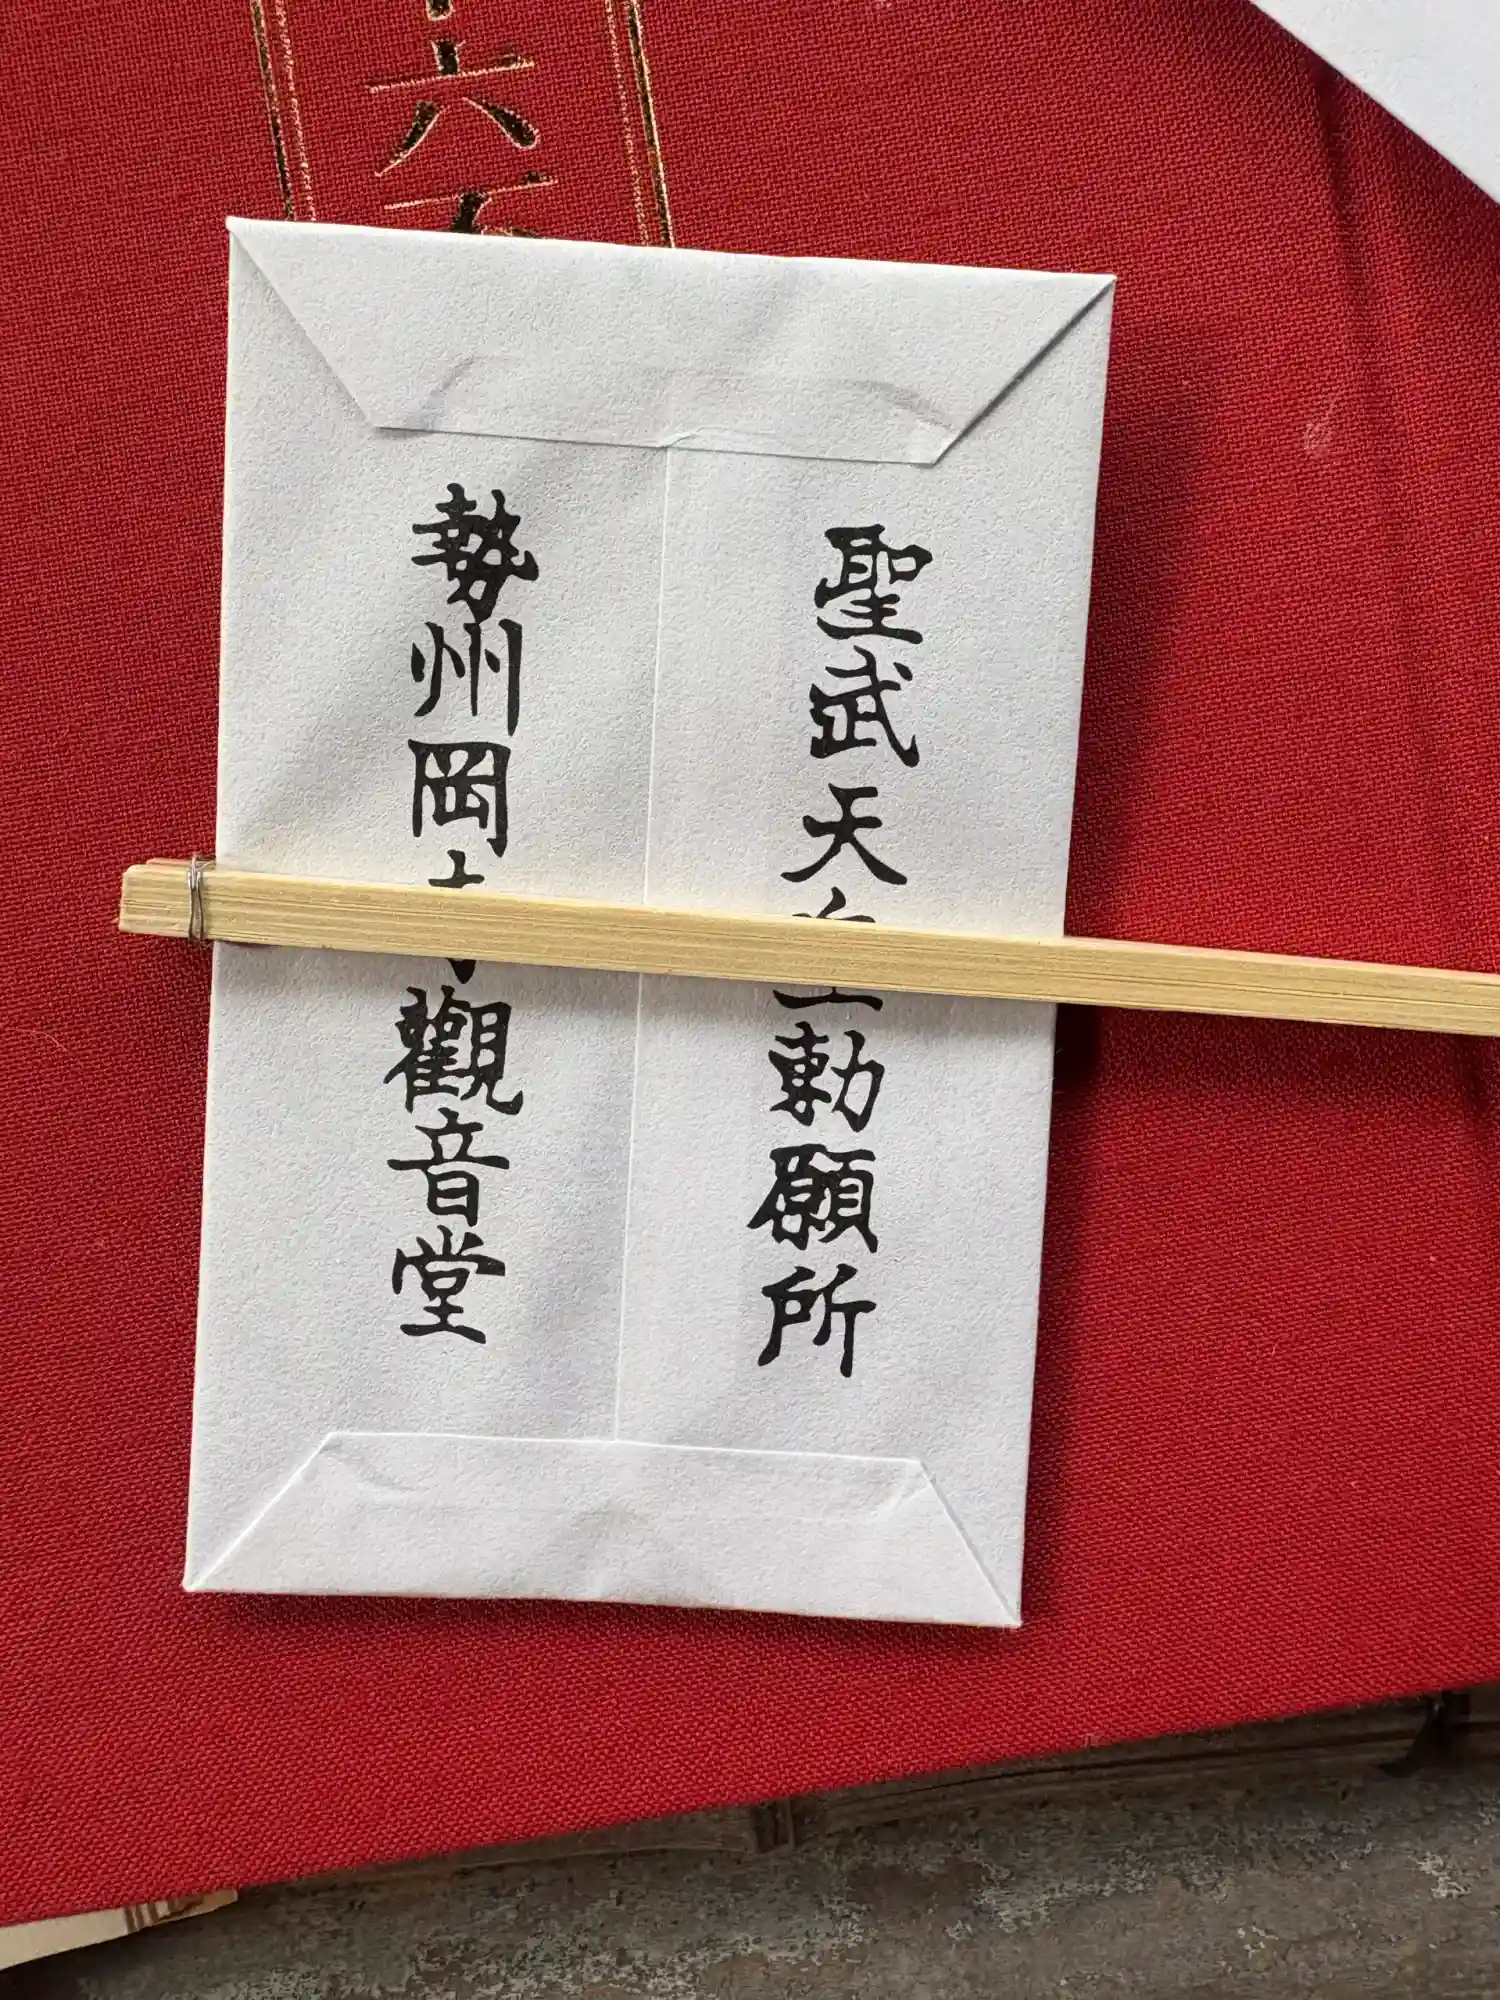 六
聖武天皇勅願所
勢州岡寺觀音堂